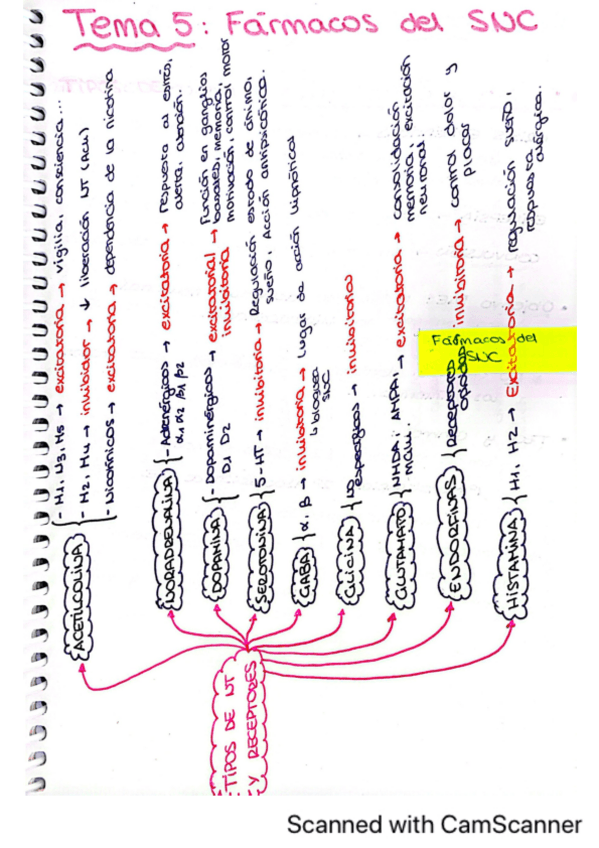 Tema 5: Fármacos del SNC
TIPOS DE NT
Y RECEPTORES
ACETILCOLINA
- M1, M3, M5 → excitatoria → vigilia, consciencia...
- M2, M4 → inhibidor → ↓ liberación NT (ACh)
- Nicotínicos → excitatoria → dependencia de la nicotina
NORADRENALINA
- Adrenérgicos → excitatoria → respuesta al estrés,
α1 α2 β1 β2
alerta, atención.
DOPAMINA
- Dopaminérgicos → excitatoria/ → Función en ganglios
D1 D2
inhibitoria
basales, memoria,
motivación, control motor
SEROTONINA
5-HT → inhibitoria → Regulación estado de ánimo,
sueño, Acción antipsicótica.
GABA
α, β → inhibitoria → Lugar de acción hipnóticos
↳ bloquea
SNC
GLICINA
No
específicos → inhibitorias
GLUTAMATO
NMDA, AMPA, → excitatoria → consolidación
MGlu.
memoria, excitación
neuronal
ENDORFINAS
Receptores
opioides
inhibitoria → control dolor y
placer
HISTAMINA
H1, H2 → Excitatoria → regulación sueño,
respuesta
alérgica.
Fármacos del
SNC
Scanned with CamScanner